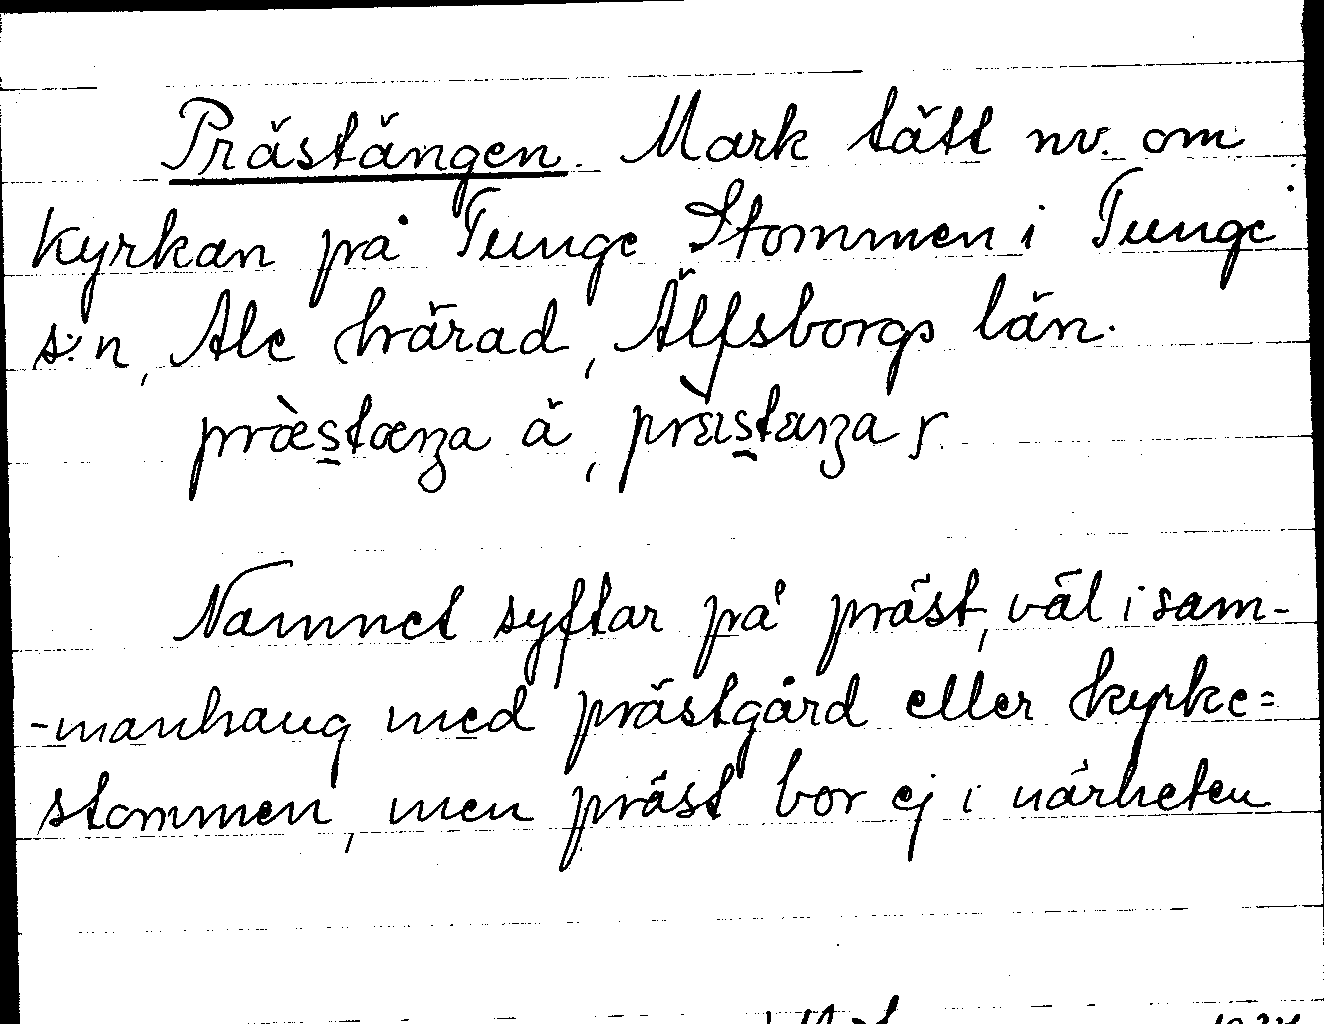 Prästängen. Mark tätt nv. om
kyrkan på Tunge Stommen i Tunge
s:n, Ale härad, Älfsborgs län.
præ̀stæŋa ä, prɛ̀stɛŋa y.
Namnet syftar på präst, väl i sam-
-manhang med prästgård eller kyrke=
stommen, men präst bor ej i närheten